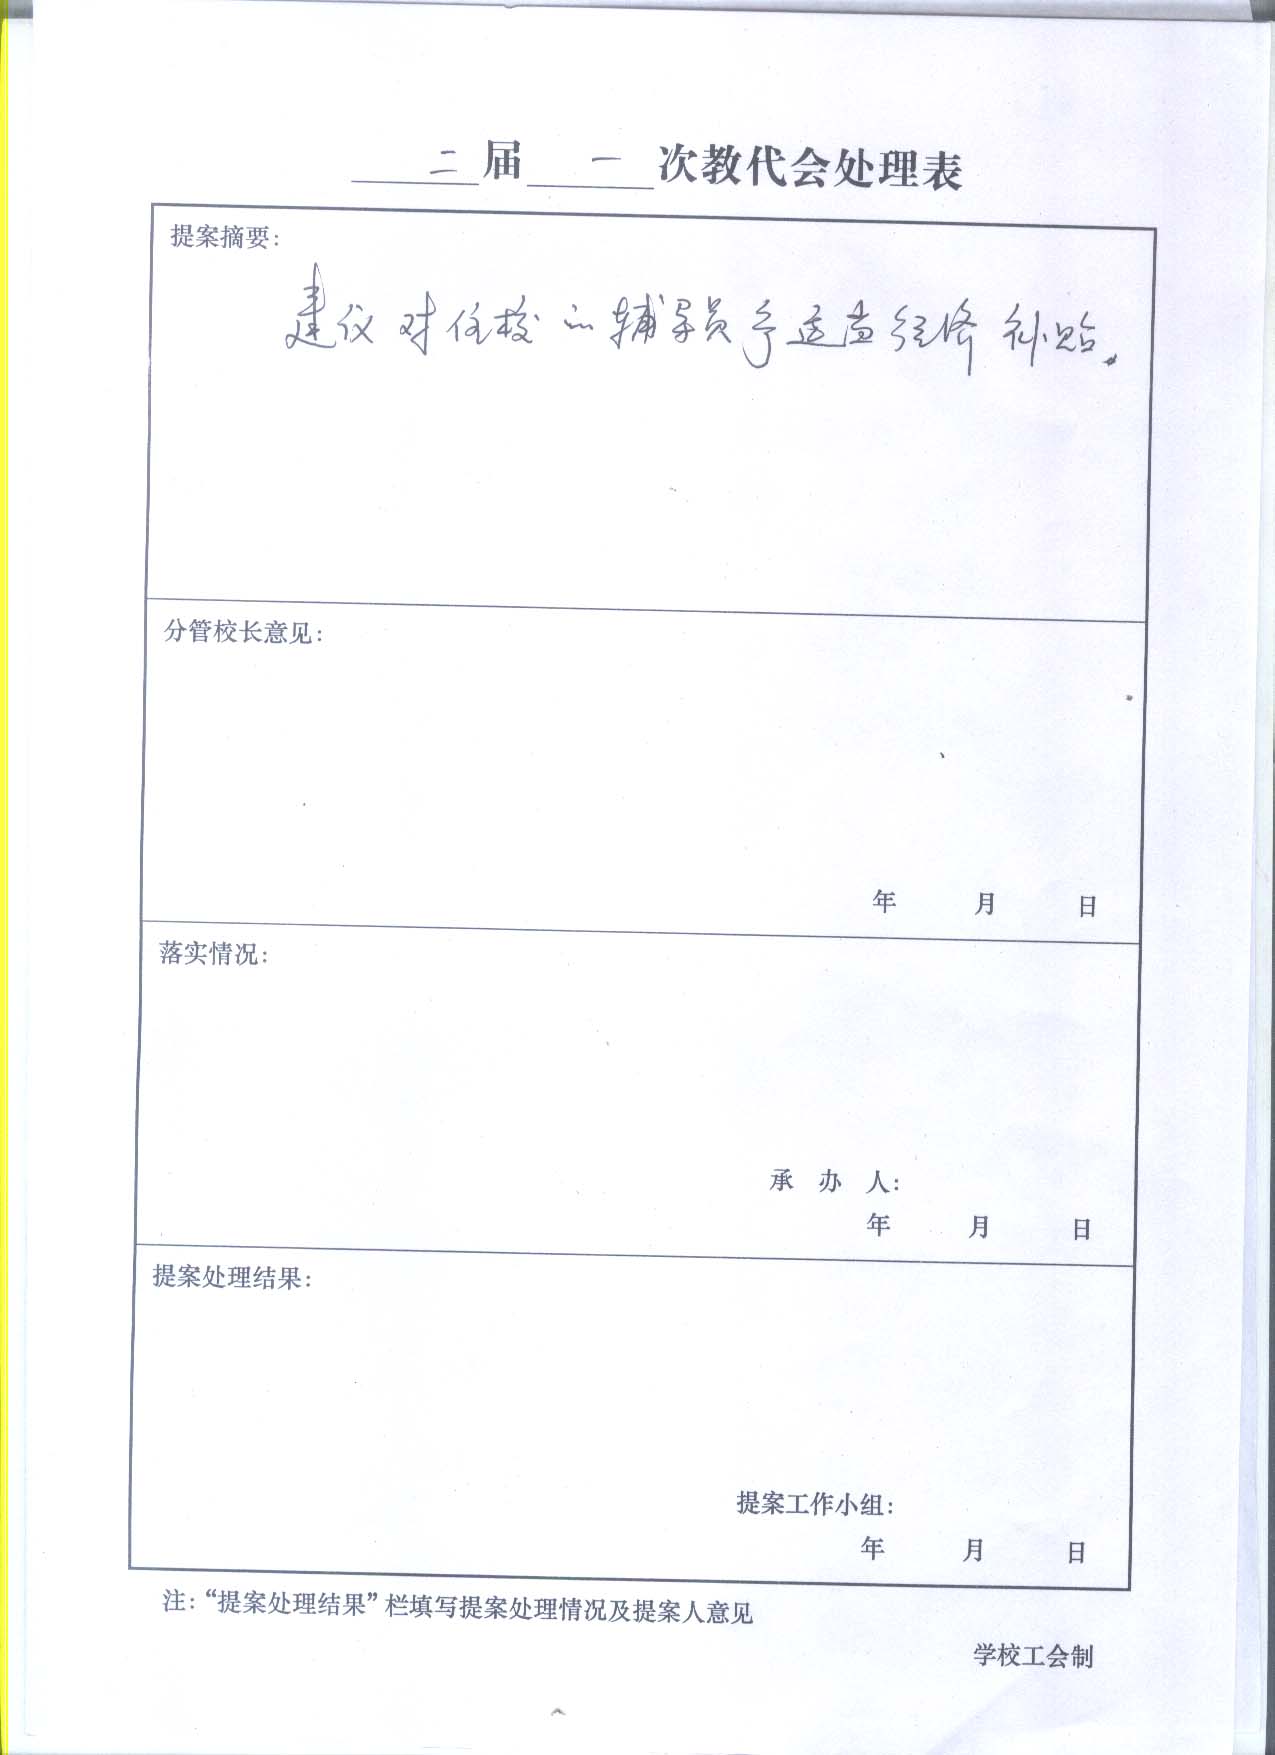 二届 一 次教代会处理表
提案摘要：
建议对住校的辅导员予适当经济补贴。
分管校长意见：
年 月 日
落实情况：
承 办 人：
年 月 日
提案处理结果：
提案工作小组：
年 月 日
注：“提案处理结果”栏填写提案处理情况及提案人意见
学校工会制